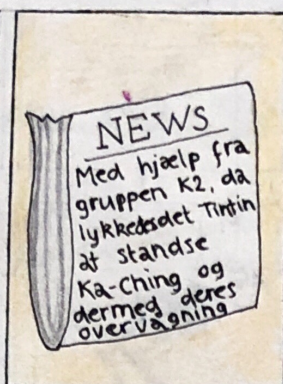 NEWS
Med hjælp fra
gruppen K2, da
lykkedesdet Tintin
at standse
Ka-Ching og
dermed deres
overvågning